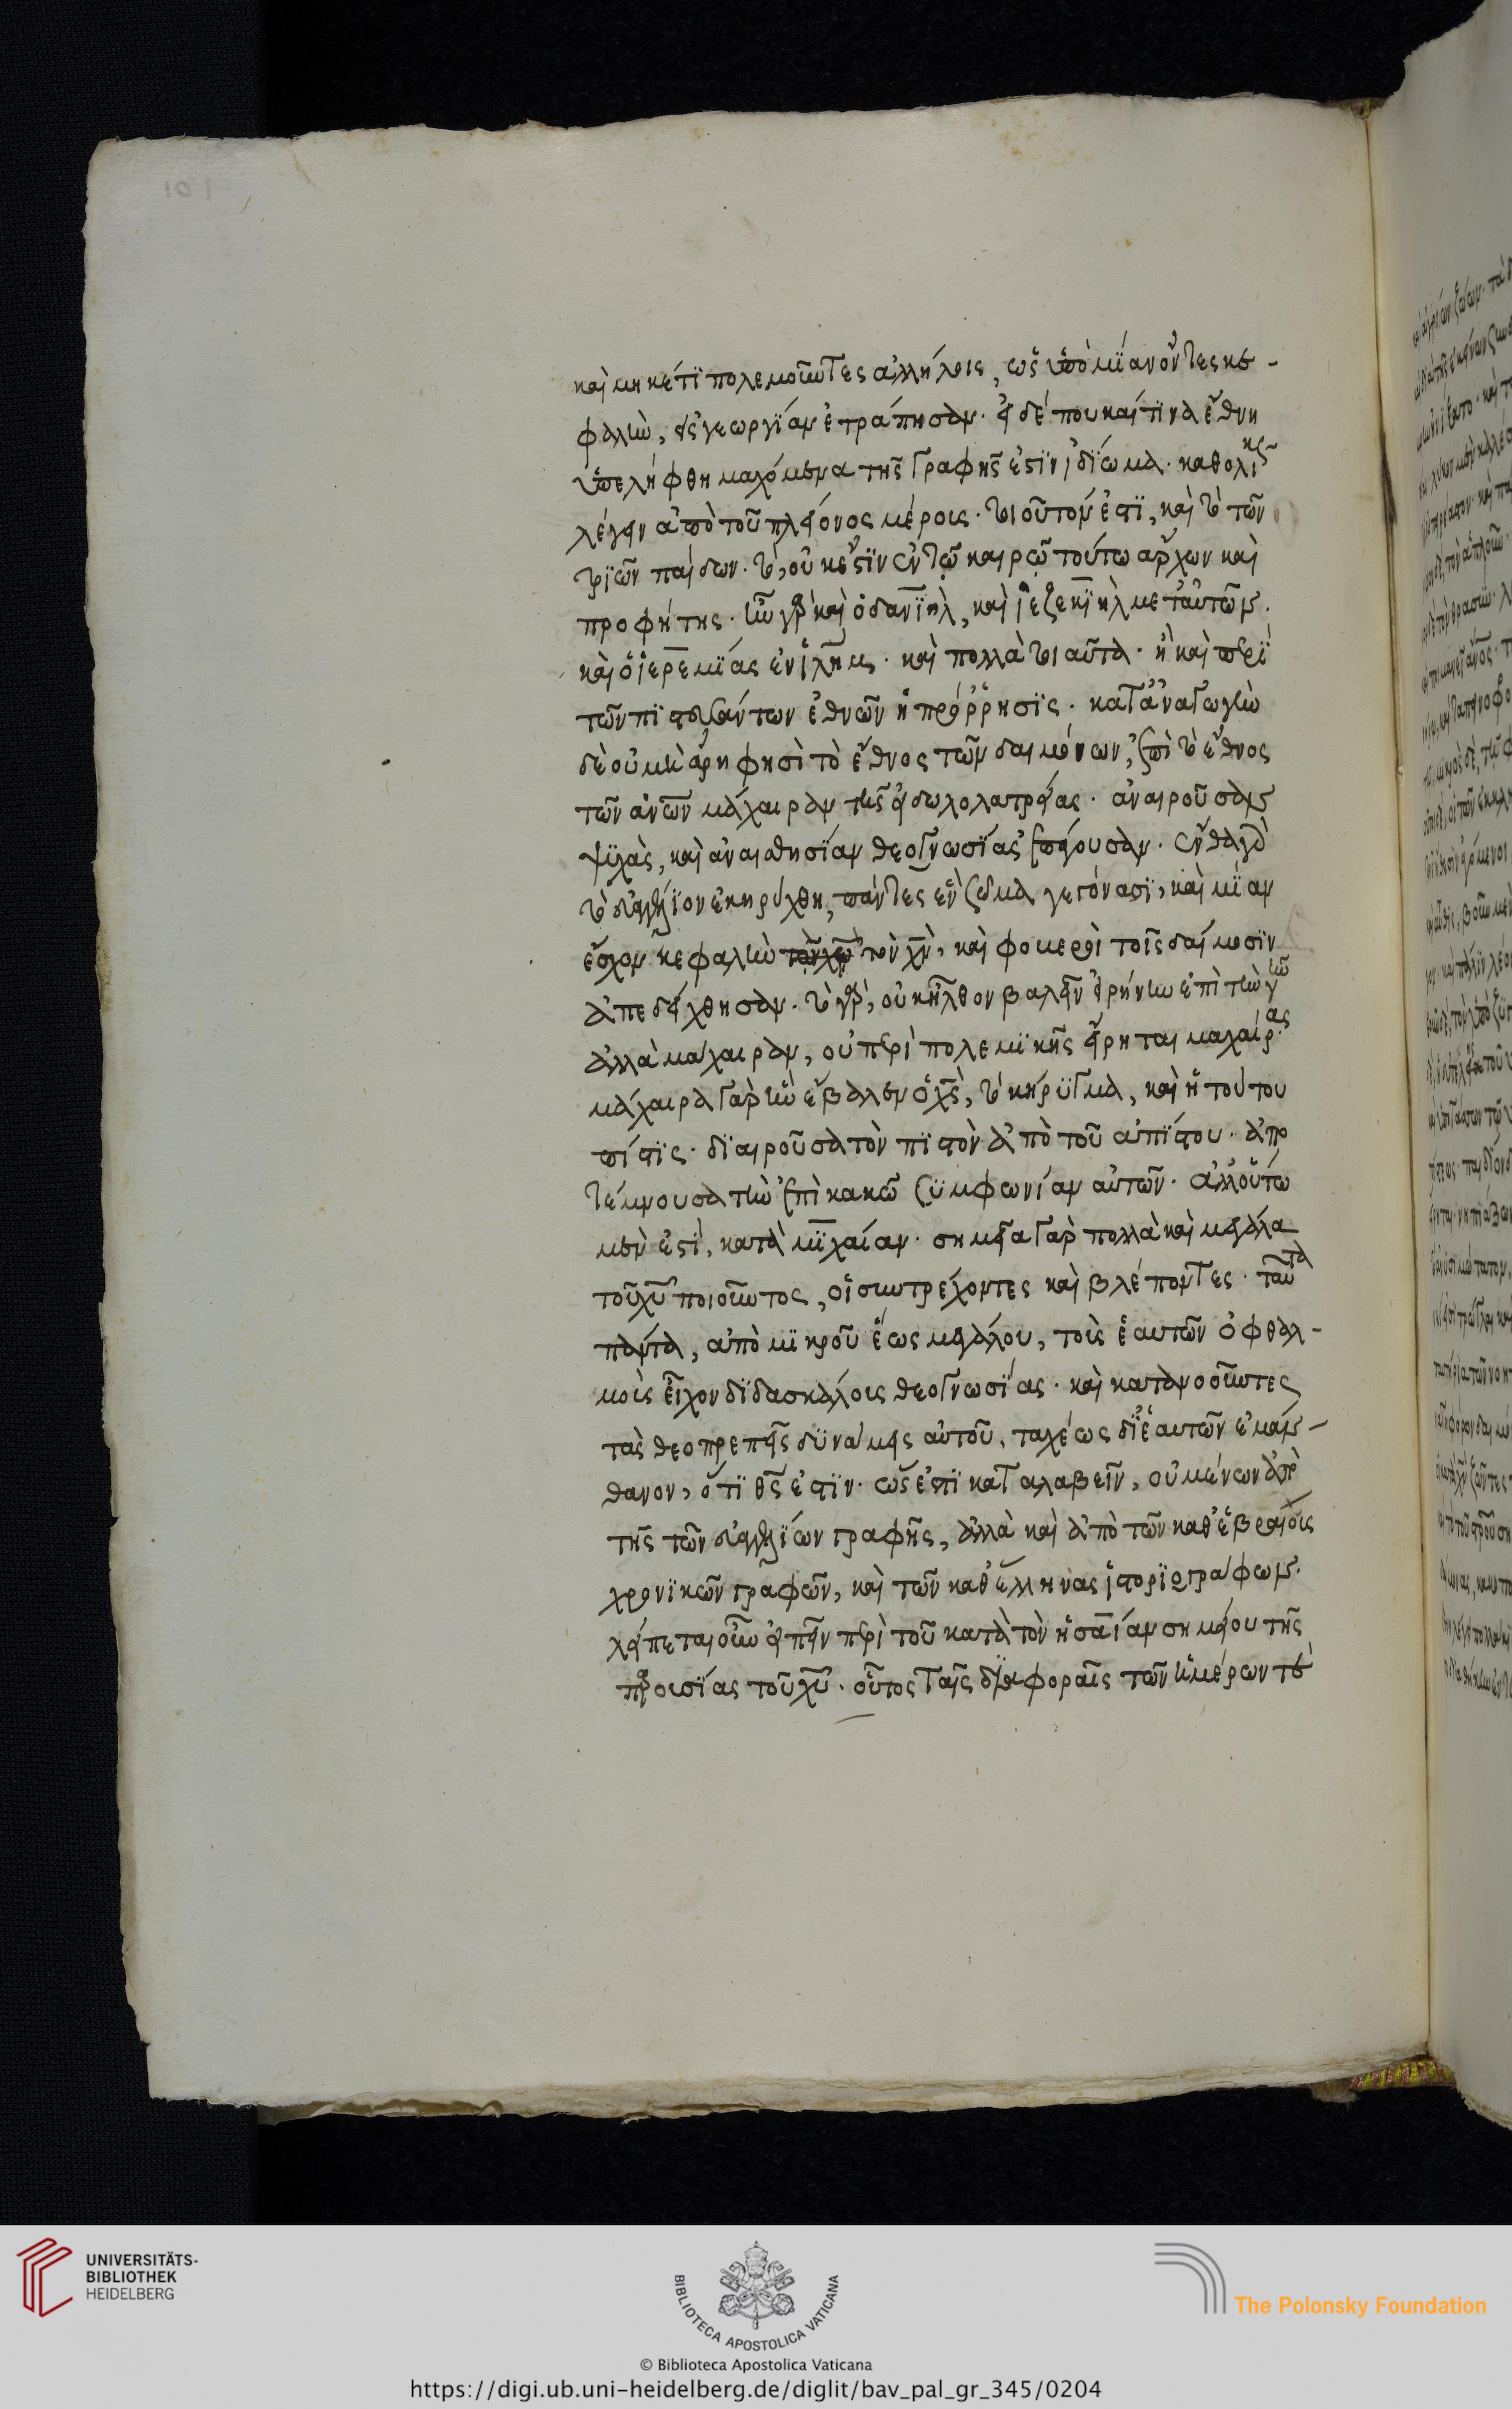 καὶ μηκέτι πολεμοῦντες ἀλλήλοις, ὡς ὑπὸ μίαν ὄντες κε-
φαλὴν, εἰς γεωργίαν ἐτράπησαν. εἰ δέ που καί τινα ἔθνη
ὑπελήφθη μαχόμενα τῆς γραφῆς ἐστὶν ἰδίωμα. καθολικῶς
λέγειν ἀπὸ τοῦ πλείονος μέρους. τοιοῦτόν ἐστι, καὶ τὸ τῶν
τριῶν παίδων. τὸ, οὐκ ἔστιν ἐν τῷ καιρῷ τούτω ἄρχων καὶ
προφήτης. ἦν γὰρ καὶ ὁ δανιὴλ, καὶ ἰεζεκιὴλ μετ' αὐτῶν.
καὶ ὁ ἱερεμίας ἐν ἱλημ. καὶ πολλὰ τοιαῦτα. ἢ καὶ περὶ
τῶν πιστευσάντων ἐθνῶν ἡ πρόρρησις. κατ' ἀναγωγὴν
δὲ οὐ μὴ ἄρη φησὶ τὸ ἔθνος τῶν δαιμόνων, ἐπὶ τὸ ἔθνος
τῶν ἀνων μάχαιραν τῆς εἰδωλολατρείας. ἀναιροῦσαν
ψυχὰς, καὶ ἀναισθησίαν θεογνωσίας ἐπάγουσαν. ἔνθα γὰρ
τὸ εὐαγγέλιον ἐκηρύχθη, πάντες ἓν ζεῦμα γεγόνασι, καὶ μίαν
ἔσχον κεφαλὴν τὸν χν, καὶ φοβεροὶ τοῖς δαίμοσιν
ἀπεδείχθησαν. τὸ γὰρ, οὐκ ἦλθον βαλεῖν εἰρήνην ἐπὶ τὴν γῆν
ἀλλὰ μάχαιραν, οὐ περὶ πολεμικῆς εἴρηται μαχαίρας
μάχαιρα γὰρ ἣν ἔβαλεν ὁ χς, τὸ κήρυγμα, καὶ ἡ τούτου
πίστις. διαιροῦσα τὸν πιστὸν ἀπὸ τοῦ ἀπίστου. ἀπο
τέμνουσα τὴν ἐπὶ κακῶ συμφωνίαν αὐτῶν. ἀλλ' οὕτω
μέν ἐστι, κατὰ μιχαίαν. σημεῖα γὰρ πολλὰ καὶ μεγάλα
τοῦ χυ ποιοῦντος, οἱ συντρέχοντες καὶ βλέποντες. ταῦτα
πάντα, ἀπὸ μικροῦ ἕως μεγάλου, τοὺς ἑαυτῶν ὀφθαλ-
μοὺς εἶχον διδασκάλους θεογνωσίας. καὶ κατανοοῦντες
τὰς θεοπρεπεῖς δυνάμεις αὐτοῦ, ταχέως δι' ἑαυτῶν ἐμάν-
θανον, ὅτι θς ἐστιν. ὡς ἔστι καταλαβεῖν, οὐ μόνον ἀπὸ
τῆς τῶν εὐαγγελίων γραφῆς, ἀλλὰ καὶ ἀπὸ τῶν καθ' ἑβραίοις
χρονικῶν γραφῶν, καὶ τῶν καθ' ἕλληνας ἱστοριογράφων.
λείπεται οὖν εἰπεῖν περὶ τοῦ κατὰ τὸν ἡσαΐαν σημείου τῆς
παρουσίας τοῦ χυ. οὗτος ταῖς διαφοραῖς τῶν ἡμέρων τε
UNIVERSITÄTS-
BIBLIOTHEK
HEIDELBERG
BIBLIOTECA APOSTOLICA VATICANA
The Polonsky Foundation
© Biblioteca Apostolica Vaticana
https://digi.ub.uni-heidelberg.de/diglit/bav_pal_gr_345/0204